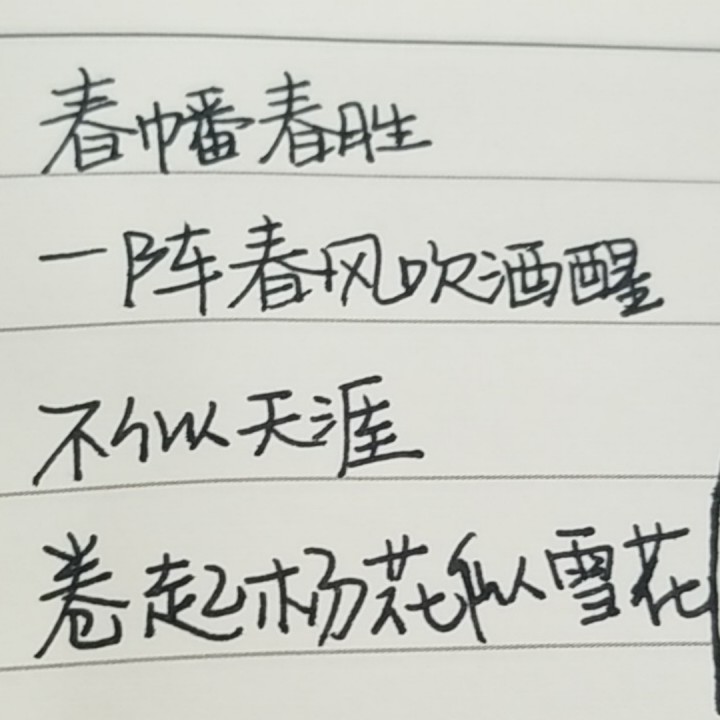 春幡春胜
一阵春风吹酒醒
不似天涯
卷起杨花似雪花